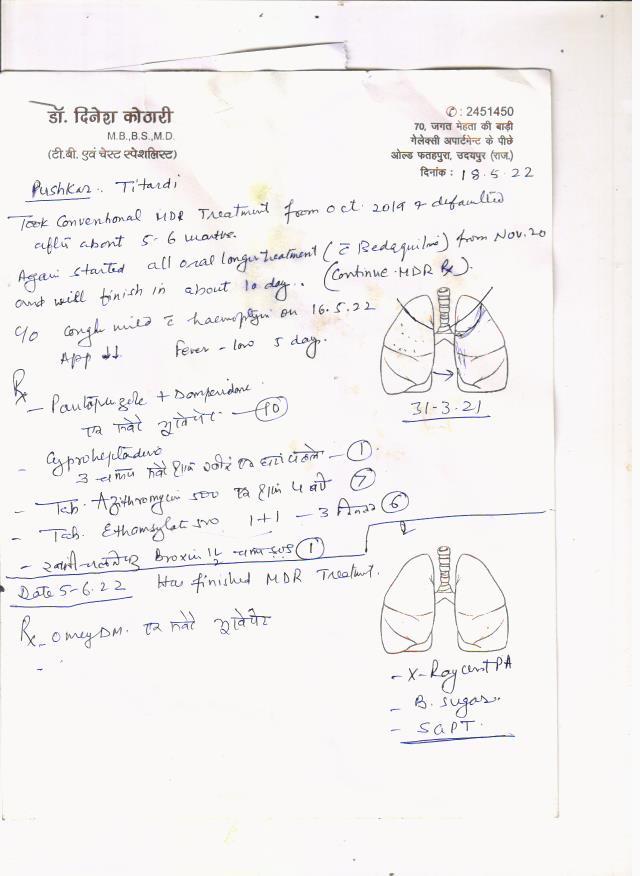 डॉ. दिनेश कोठारी
M.B.,B.S.,M.D.
(टी.बी. एवं चेस्ट स्पेशलिस्ट)
✆ : 2451450
70, जगत मेहता की बाड़ी
गेलेक्सी अपार्टमेन्ट के पीछे
ओल्ड फतहपुरा, उदयपुर (राज.)
दिनांक : 18.5.22
Pushkar.. Titardi
Took Conventional MDR Treatment from Oct. 2019 & defaulted
after about 5-6 months.
Again started all oral longer treatment (c̄ Bedaquiline) from Nov. 20
and will finish in about 10 day.. (Continue MDR Rx).
c/o cough mild c̄ haemoptysis on 16.5.22
App ↓↓ Fever - low 5 day.
31-3-21
Rx
- Pantoprazole + Domperidone
एक सवेरे भूखे पेट - (10)
- Cyproheptadine
3 चम्मच सवेरे शाम - (1)
- Tab. Azithromycin 500 एक शाम 4 बजे (7)
- Tab. Ethamsylate 500 1+1 - 3 दिन तक (6)
- Broxin 1½ चम्मच (1)
Date 5-6.22 Has finished MDR Treatment.
Rx - Omez DM. एक सवेरे भूखे पेट
-
- X-Ray chest PA
- B. Sugar.
- SGPT.